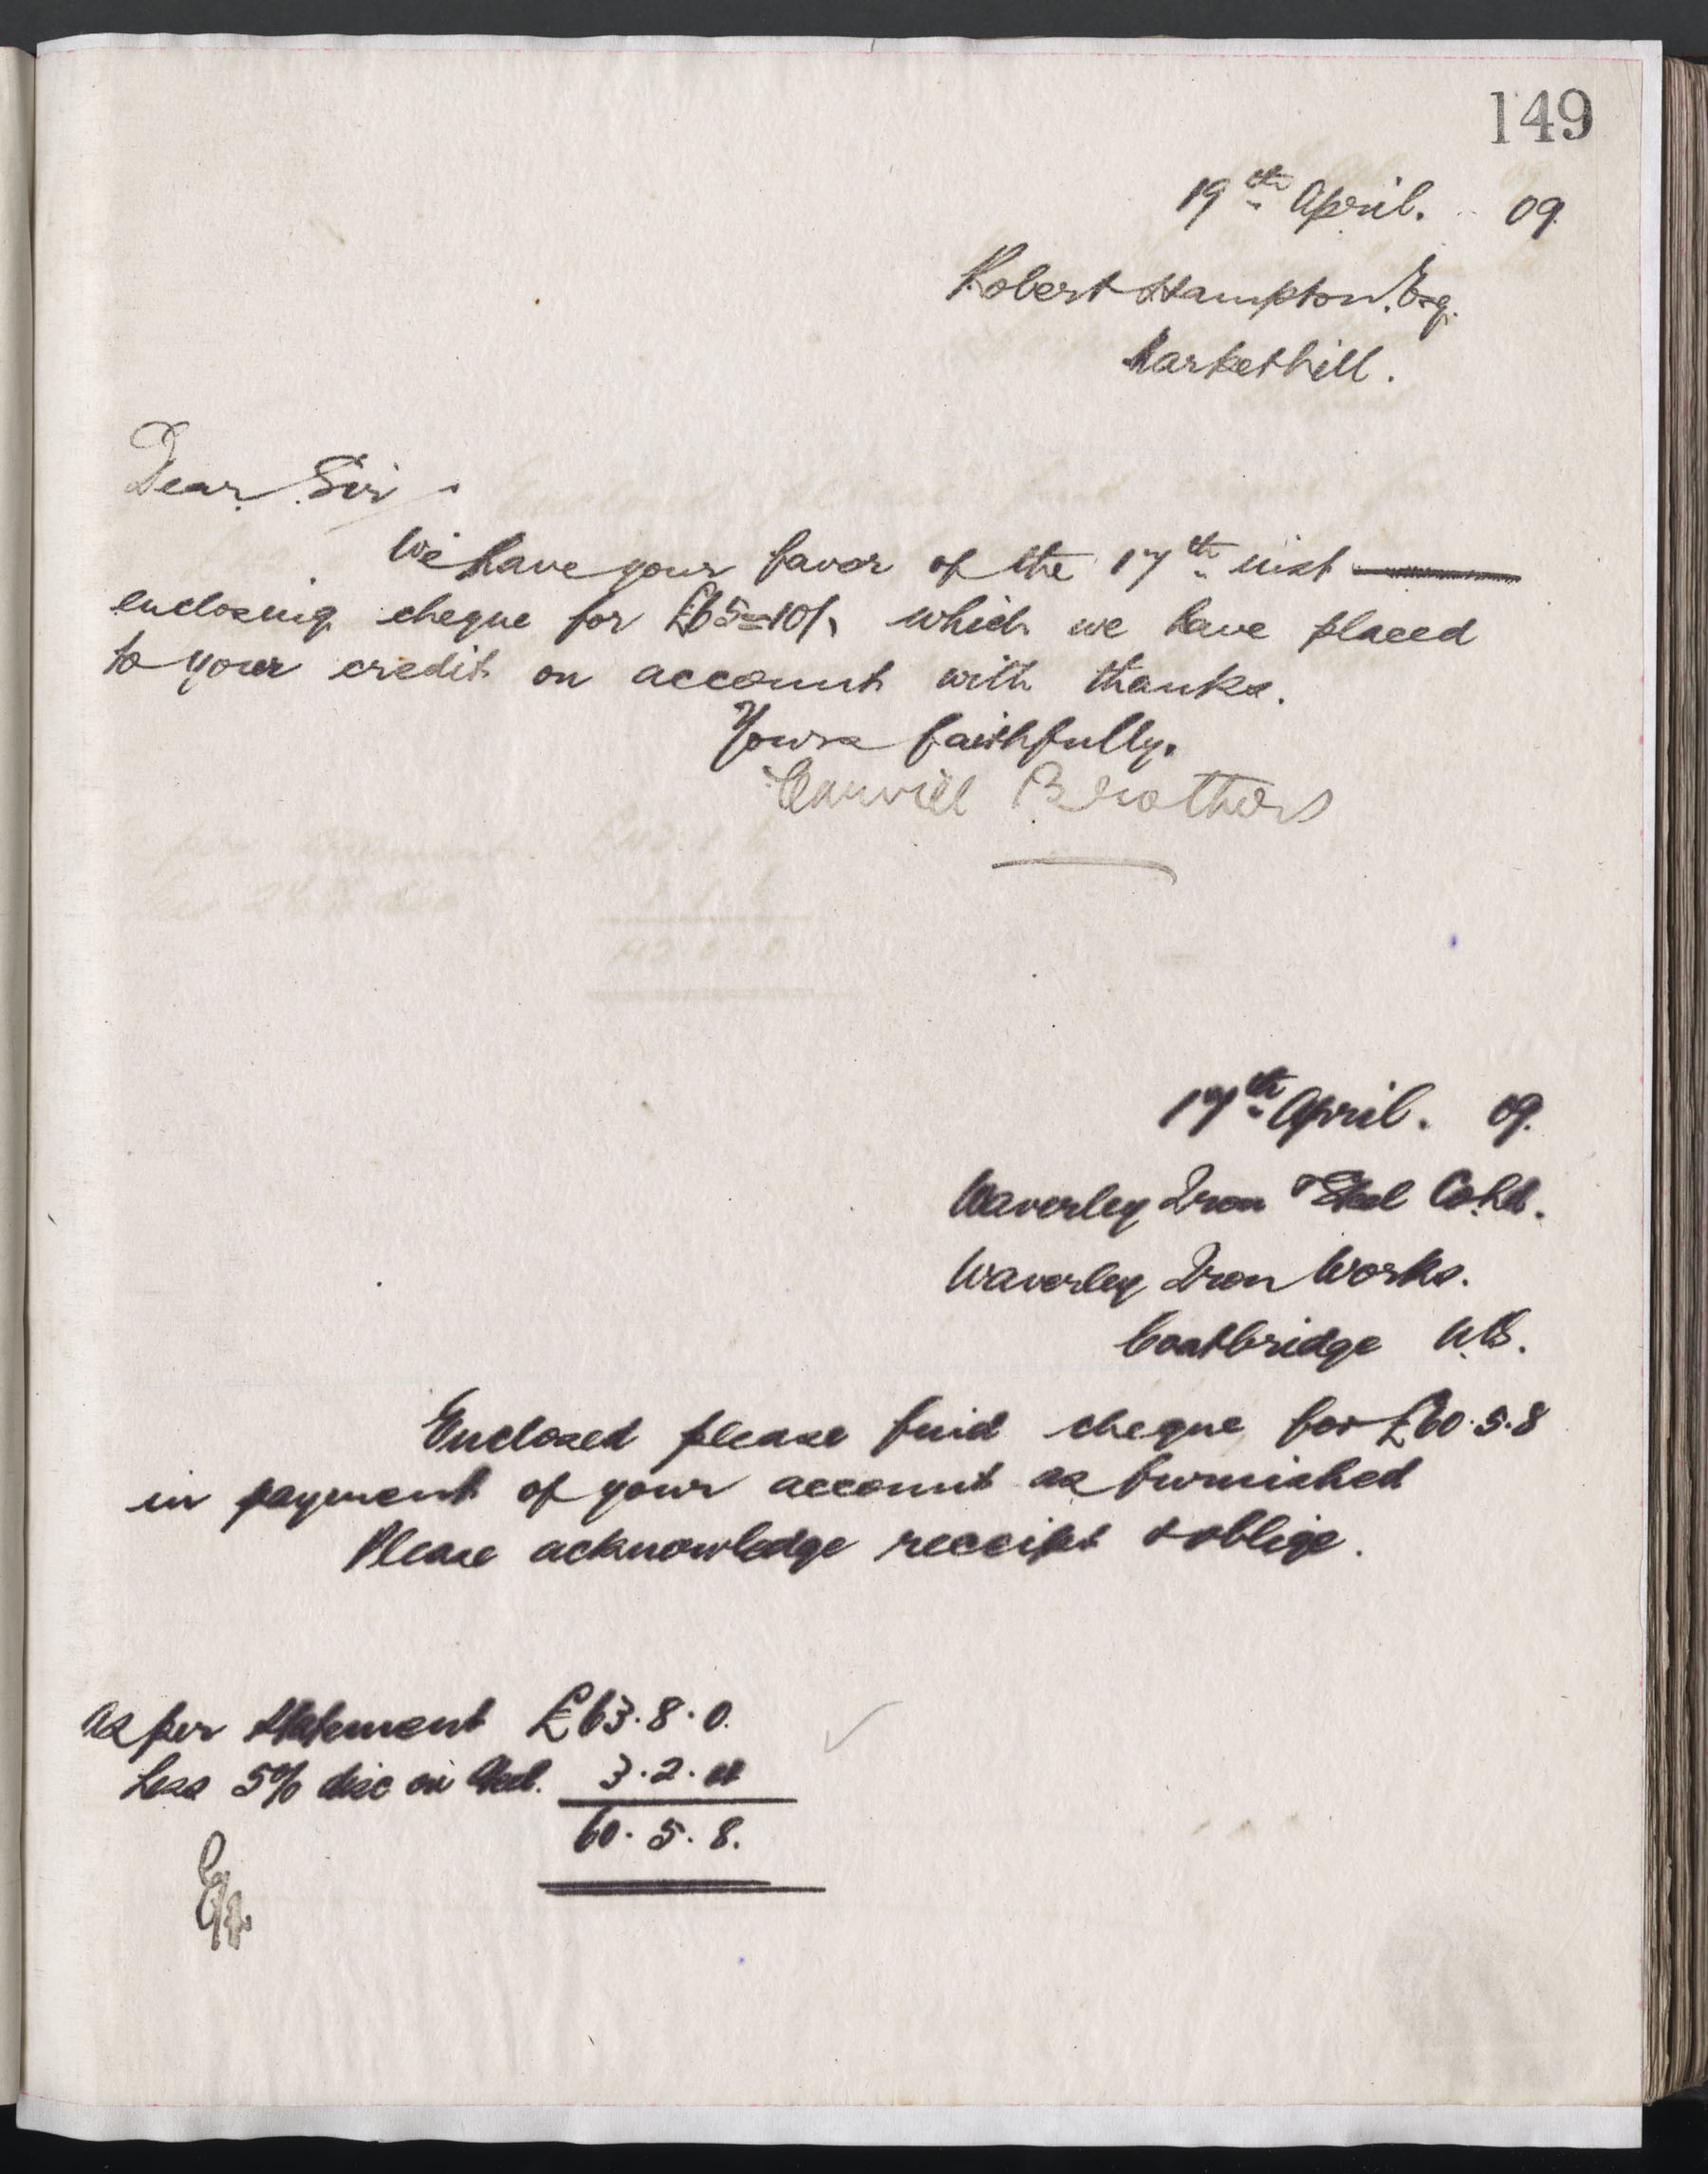 149
19th April. 09.
Robert Hampton. Esq.
Markethill.
Dear Sir,
We have your favor of the 17th inst
enclosing cheque for £65=10/- which we have placed
to your credit on account with thanks.
Yours faithfully.
Carvill Brothers
17th April. 09.
Waverley Iron & Steel Co. Ltd.
Waverley Iron Works.
Coatbridge N.B.
Enclosed please find cheque for £60.5.8
in payment of your account as furnished
Please acknowledge receipt & oblige.
As per statement £63.8.0.
Less 5% disc on 3.2.4
60.5.8.